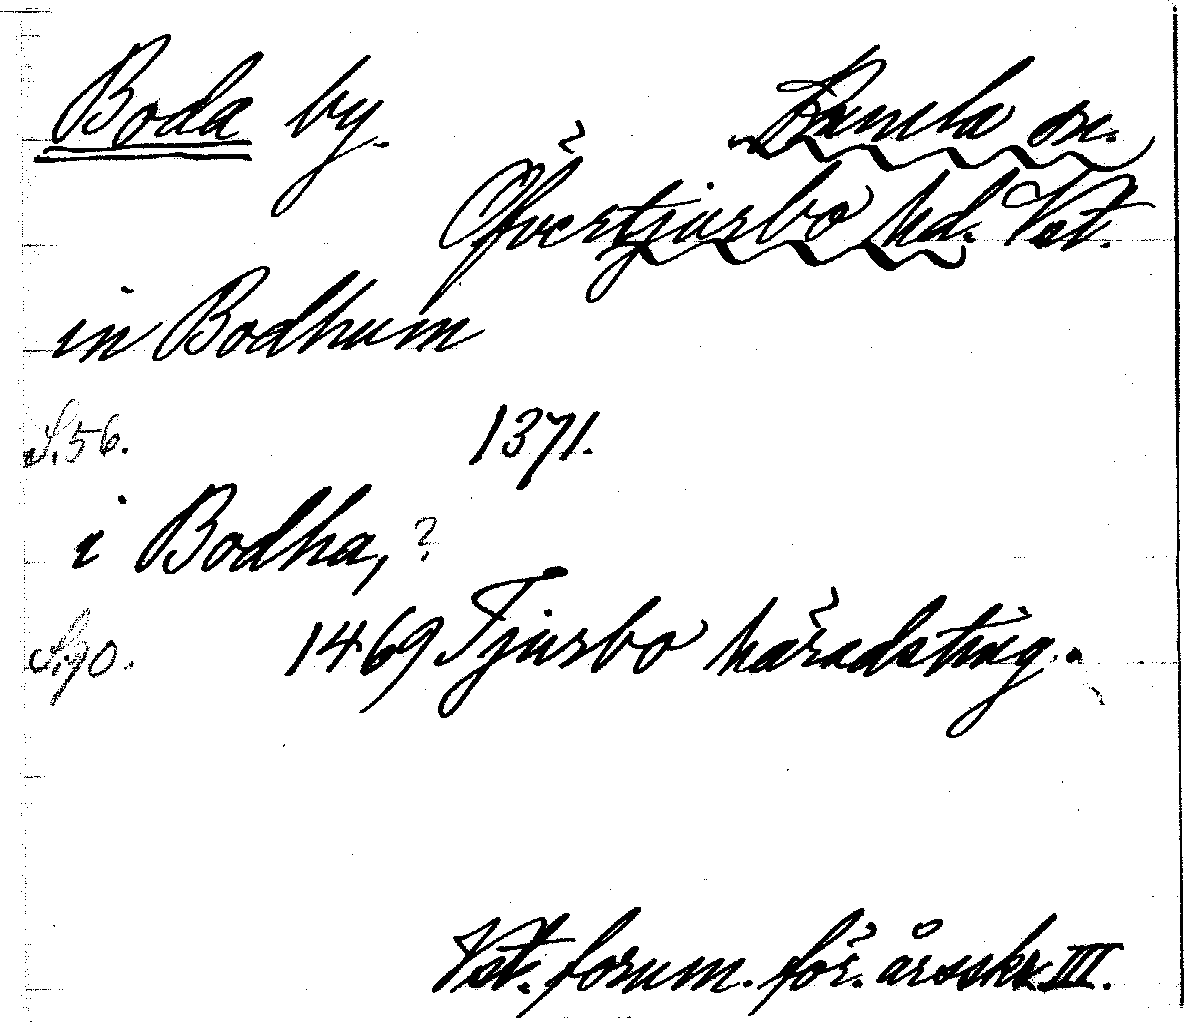 Boda by. Ramsta sn.
Öfvertjurbo hd. Vst.
in Bodhum
S. 56. 1371.
i Bodha, ?
S. 90. 1469 Tjurbo häradsting.
Vst. fornm. för. årsskr. III.